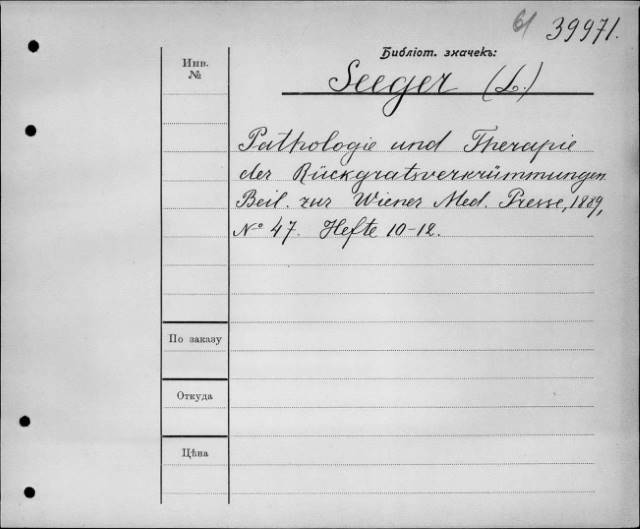 61 39971.
Библіот. значекъ:
Инв.
№
Seeger (L.)
Pathologie und Therapie
der Rückgratsverkrümmungen
Beil. zur Wiener Med. Presse, 1889,
№ 47. Hefte 10-12.
По заказу
Откуда
Цѣна